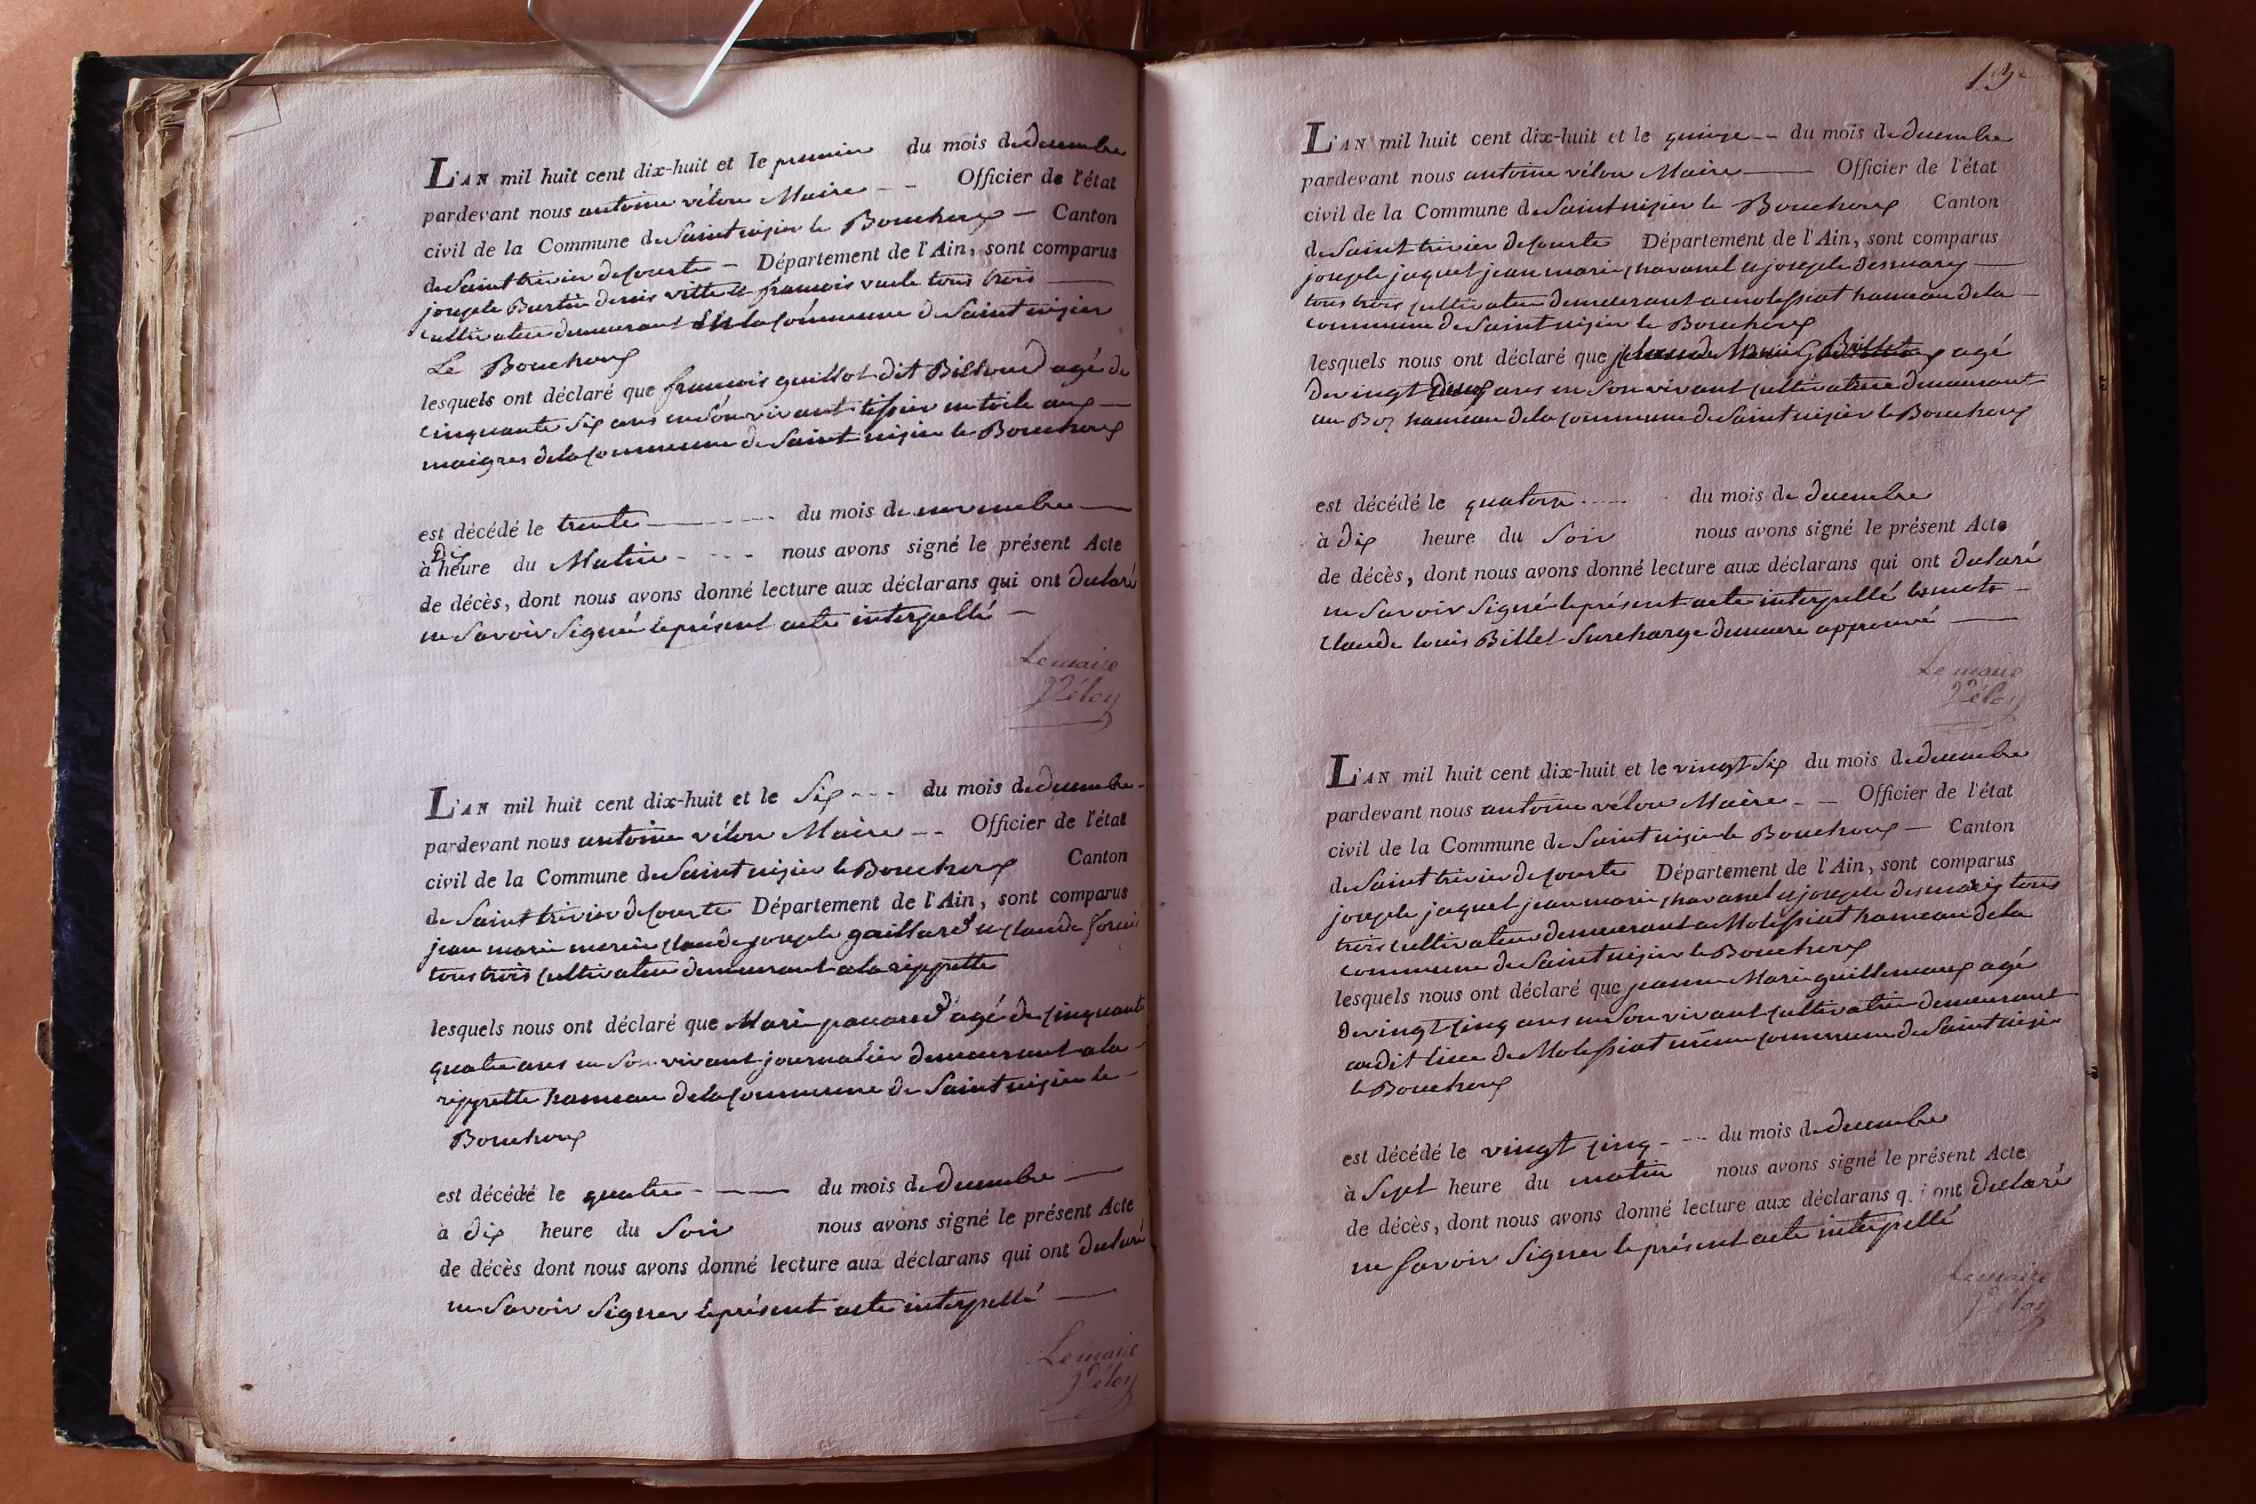 L'AN mil huit cent dix-huit et le premier du mois de decembre
pardevant nous antoine vélon Maire - - Officier de l'état
civil de la Commune de Saint nizier le Bouchoux - Canton
de Saint trivier de courte - Département de l'Ain, sont comparus
joseph Burtin denis villet francois tous trois
cultivateur demeurant en la commune de Saint nizier
Le Bouchoux
lesquels ont déclaré que francois guillot dit Billoud agé de
cinquante six ans en son vivant tessier en toile aux
maigres de la commune de Saint nizier le Bouchoux
est décédé le trente - - - - du mois de novembre
à dix heure du Matin - - - - nous avons signé le présent Acte
de décès, dont nous avons donné lecture aux déclarans qui ont declaré
ne Savoir Signé le présent acte interpellé -
Le maire
Vélon
L'AN mil huit cent dix-huit et le Six - - - du mois de decembre -
pardevant nous antoine vélon Maire - - Officier de l'état
civil de la Commune de Saint nizier le Bouchoux Canton
de Saint trivier de courte Département de l'Ain, sont comparus
jean marie morin claude joseph gaillard et claude
tous trois cultivateur demeurant a la rippette
lesquels nous ont déclaré que Marie pauard agé de cinquante
quatre ans en Son vivant journalier demeurant a la -
rippette hameau de la commune de Saint nizier le -
Bouchoux
est décédé le quatre - - - du mois de Decembre
à dix heure du Soir nous avons signé le présent Acte
de décès dont nous avons donné lecture aux déclarans qui ont declaré
ne Savoir Signer le présent acte interpellé -
Le maire
Vélon
L'AN mil huit cent dix-huit et le quinze - - du mois de decembre
pardevant nous antoine vélon Maire - Officier de l'état
civil de la Commune de Saint nizier le Bouchoux Canton
de Saint trivier de courte Département de l'Ain, sont comparus
joseph jaquet jean marie chavanel et joseph Desmary -
tous trois cultivateur demeurant a molessiat hameau de la
commune de Saint nizier le Bouchoux
lesquels nous ont déclaré que claude louis Billet agé
de vingt deux ans en Son vivant cultivateur demeurant
au Boz hameau de la commune de Saint nizier le Bouchoux
est décédé le quatorze - - - - du mois de decembre
à dix heure du Soir nous avons signé le présent Acte
de décès, dont nous avons donné lecture aux déclarans qui ont declaré
ne Savoir Signé le présent acte interpellé les mots -
claude louis Billet Surcharge demeure approuvé
Le maire
Vélon
L'AN mil huit cent dix-huit et le vingt Six du mois de decembre
pardevant nous antoine vélon Maire - - Officier de l'état
civil de la Commune de Saint nizier le Bouchoux - Canton
de Saint trivier de courte Département de l'Ain, sont comparus
joseph jaquet jean marie chavanel et joseph desmaris tous
trois cultivateur demeurant a Molessiat hameau de la
commune de Saint nizier le Bouchoux
lesquels nous ont déclaré que jeanne Marie guillemaux agé
de vingt cinq ans en Son vivant cultivatrice demeurant
audit lieu de Molessiat même commune de Saint nizier
le Bouchoux
est décédé le vingt cinq - - - du mois de decembre
à Sept heure du matin nous avons signé le présent Acte
de décès, dont nous avons donné lecture aux déclarans qui ont declaré
ne Savoir Signer le présent acte interpellé
Le maire
Vélon